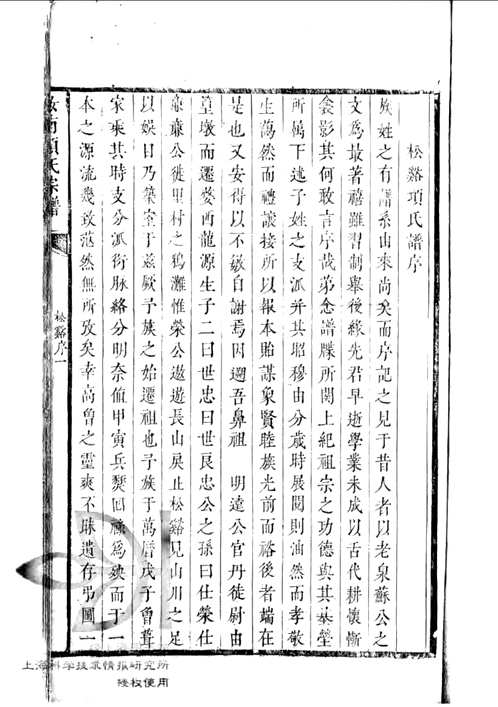 松谿項氏譜序
族姓之有譜系由來尚矣而序記之見于昔人者以老泉蘇公之
文爲最著禧雖習制舉後緣先君早逝學業未成以舌代耕懷慚
衾影其何敢言序哉第念譜牒所関上紀祖宗之功德與其墓塋
所屬下述子姓之支派并其昭穆由分歲時展閱則油然而孝敬
生藹然而禮讓接所以報本貽謀象賢睦族光前而裕後者端在
是也又安得以不敏自謝焉因遡吾鼻祖 明達公官丹徒尉由
皇墩而遷婺西龍源生子二曰世忠曰世良忠公之孫曰仕榮仕
泰公徙里村之鵶灘惟榮公遨遊長山戾止松谿見山川之足
以娛日乃築室于兹厥予族之始遷祖也予族于萬厝戊子曾葺
家乘其時支分派衍脉絡分明奈値甲寅兵燹回祿爲殃而于一
本之源流幾致茫然無所攷矣幸高曾之靈爽不昧遺存吊圖一
汝南項氏宗譜
松谿序一
上海科学技术情报研究所
授权使用